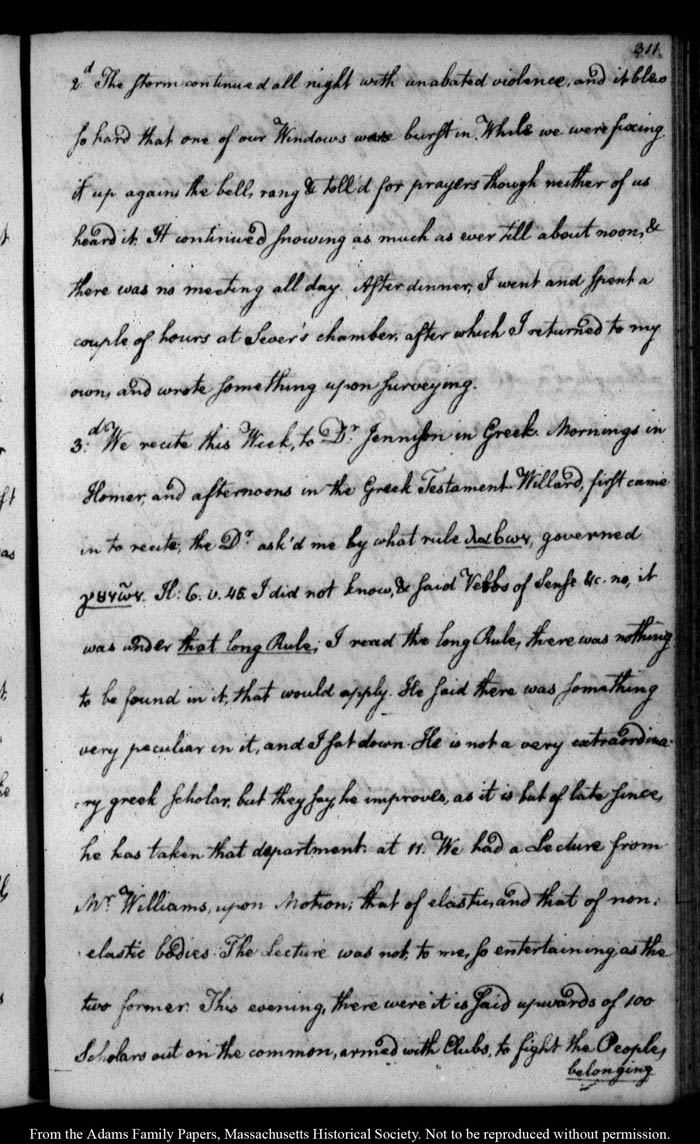 311.
2.d The storm continued all night with unabated violence, and it blew
so hard that one of our Windows was burst in. While we were fixing
it up again, the bell, rang & toll'd for prayers though neither of us
heard it. It continued snowing as much as ever till about noon, &
there was no meeting all day. After dinner, I went and spent a
couple of hours at Sever's chamber, after which I returned to my
own, and wrote something upon surveying.
3.d We recite this Week, to Dr. Jennison in Greek. Mornings in
Homer, and afternoons in the Greek Testament. Willard, first came
in to recite; the Dr. ask'd me by what rule λαβων, governed
Il: 6. v. 45. I did not know, & said Verbs of Sense &c. no, it
was under that long Rule; I read the long Rule, there was nothing
to be found in it, that would apply. He said there was something
very peculiar in it, and I sat down. He is not a very extraordina-
ry greek scholar, but they say, he improves, as it is but of late since,
he has taken that department. at 11. We had a Lecture from
Mr. Williams, upon Motion; that of elastic, and that of non:
elastic bodies. The Lecture was not, to me, so entertaining as the
two former. This evening, there were it is said upwards of 100
Scholars out on the common, armed with Clubs, to fight the People,
belonging
From the Adams Family Papers, Massachusetts Historical Society. Not to be reproduced without permission.